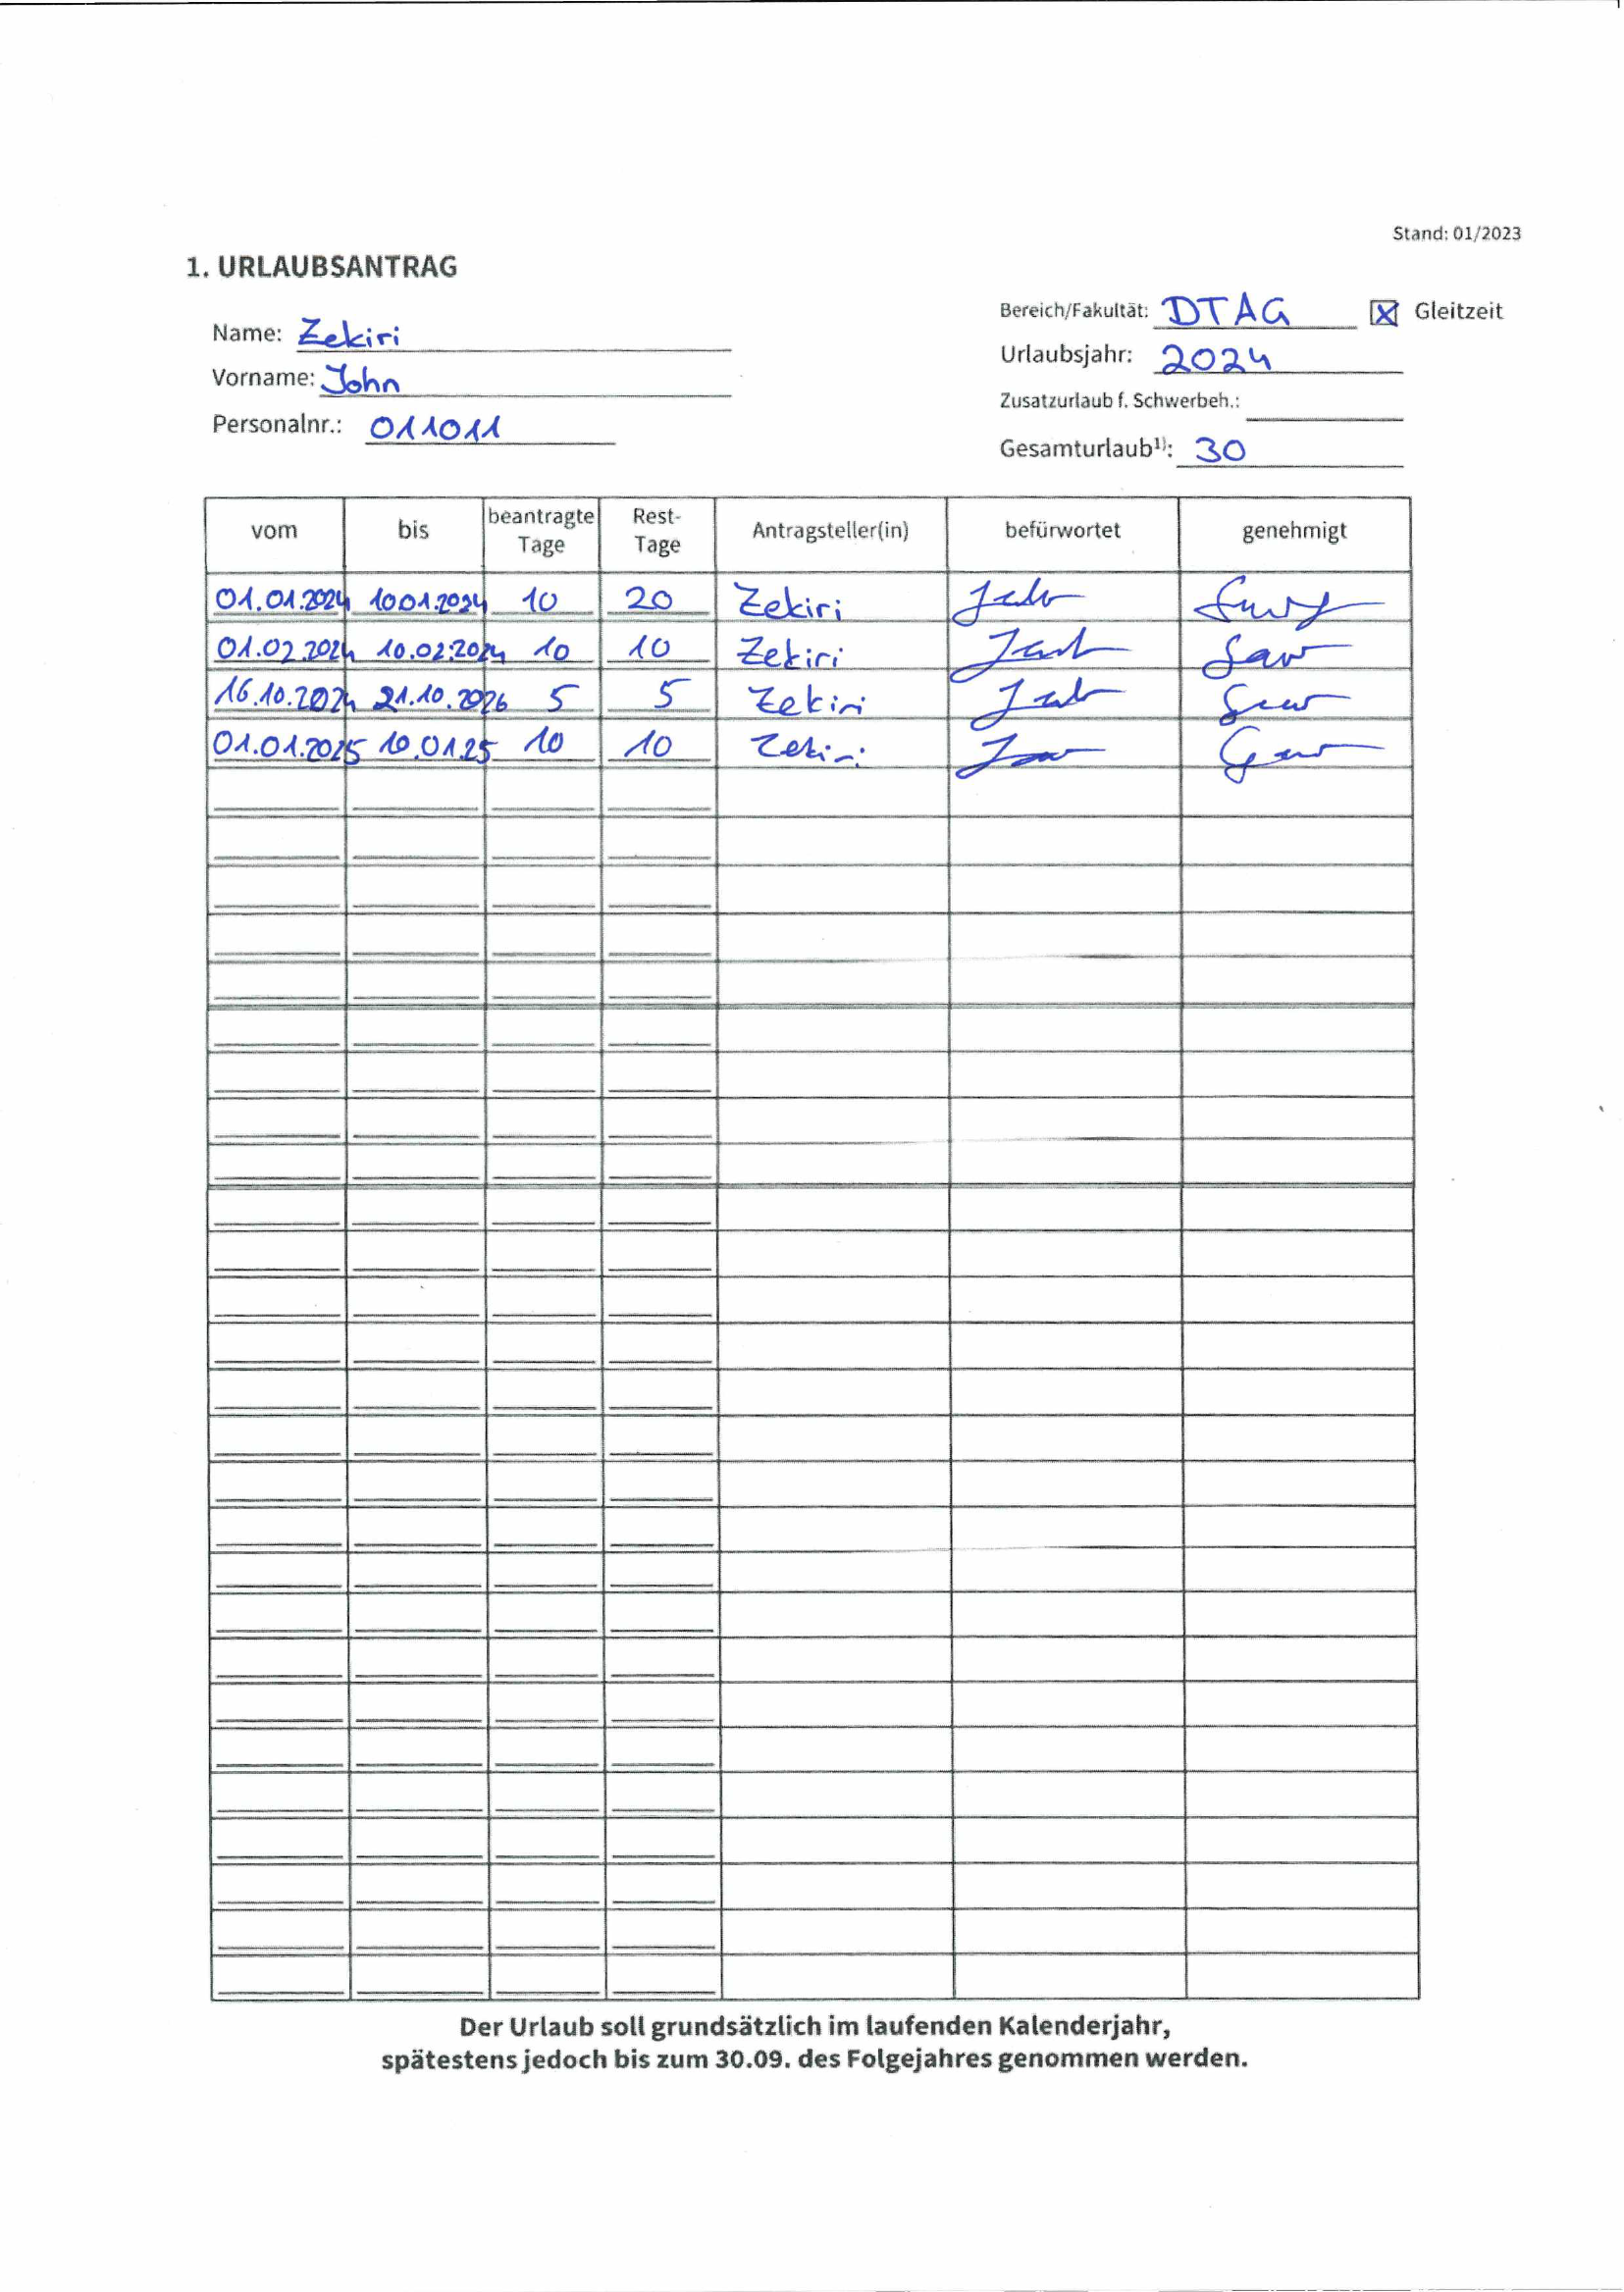 Stand: 01/2023
1. URLAUBSANTRAG
Name: Zekiri
Vorname: John
Personalnr.: 011011
Bereich/Fakultät: DTAG ☒ Gleitzeit
Urlaubsjahr: 2024
Zusatzurlaub f. Schwerbeh.:
Gesamturlaub¹⁾: 30
vom bis beantragte Tage Rest-Tage Antragsteller(in) befürwortet genehmigt
01.01.2024 10.01.2024 10 20 Zekiri
01.02.2024 10.02.2024 10 10 Zekiri
16.10.2024 21.10.2026 5 5 Zekiri
01.01.2025 10.01.25 10 10 Zekiri
Der Urlaub soll grundsätzlich im laufenden Kalenderjahr,
spätestens jedoch bis zum 30.09. des Folgejahres genommen werden.